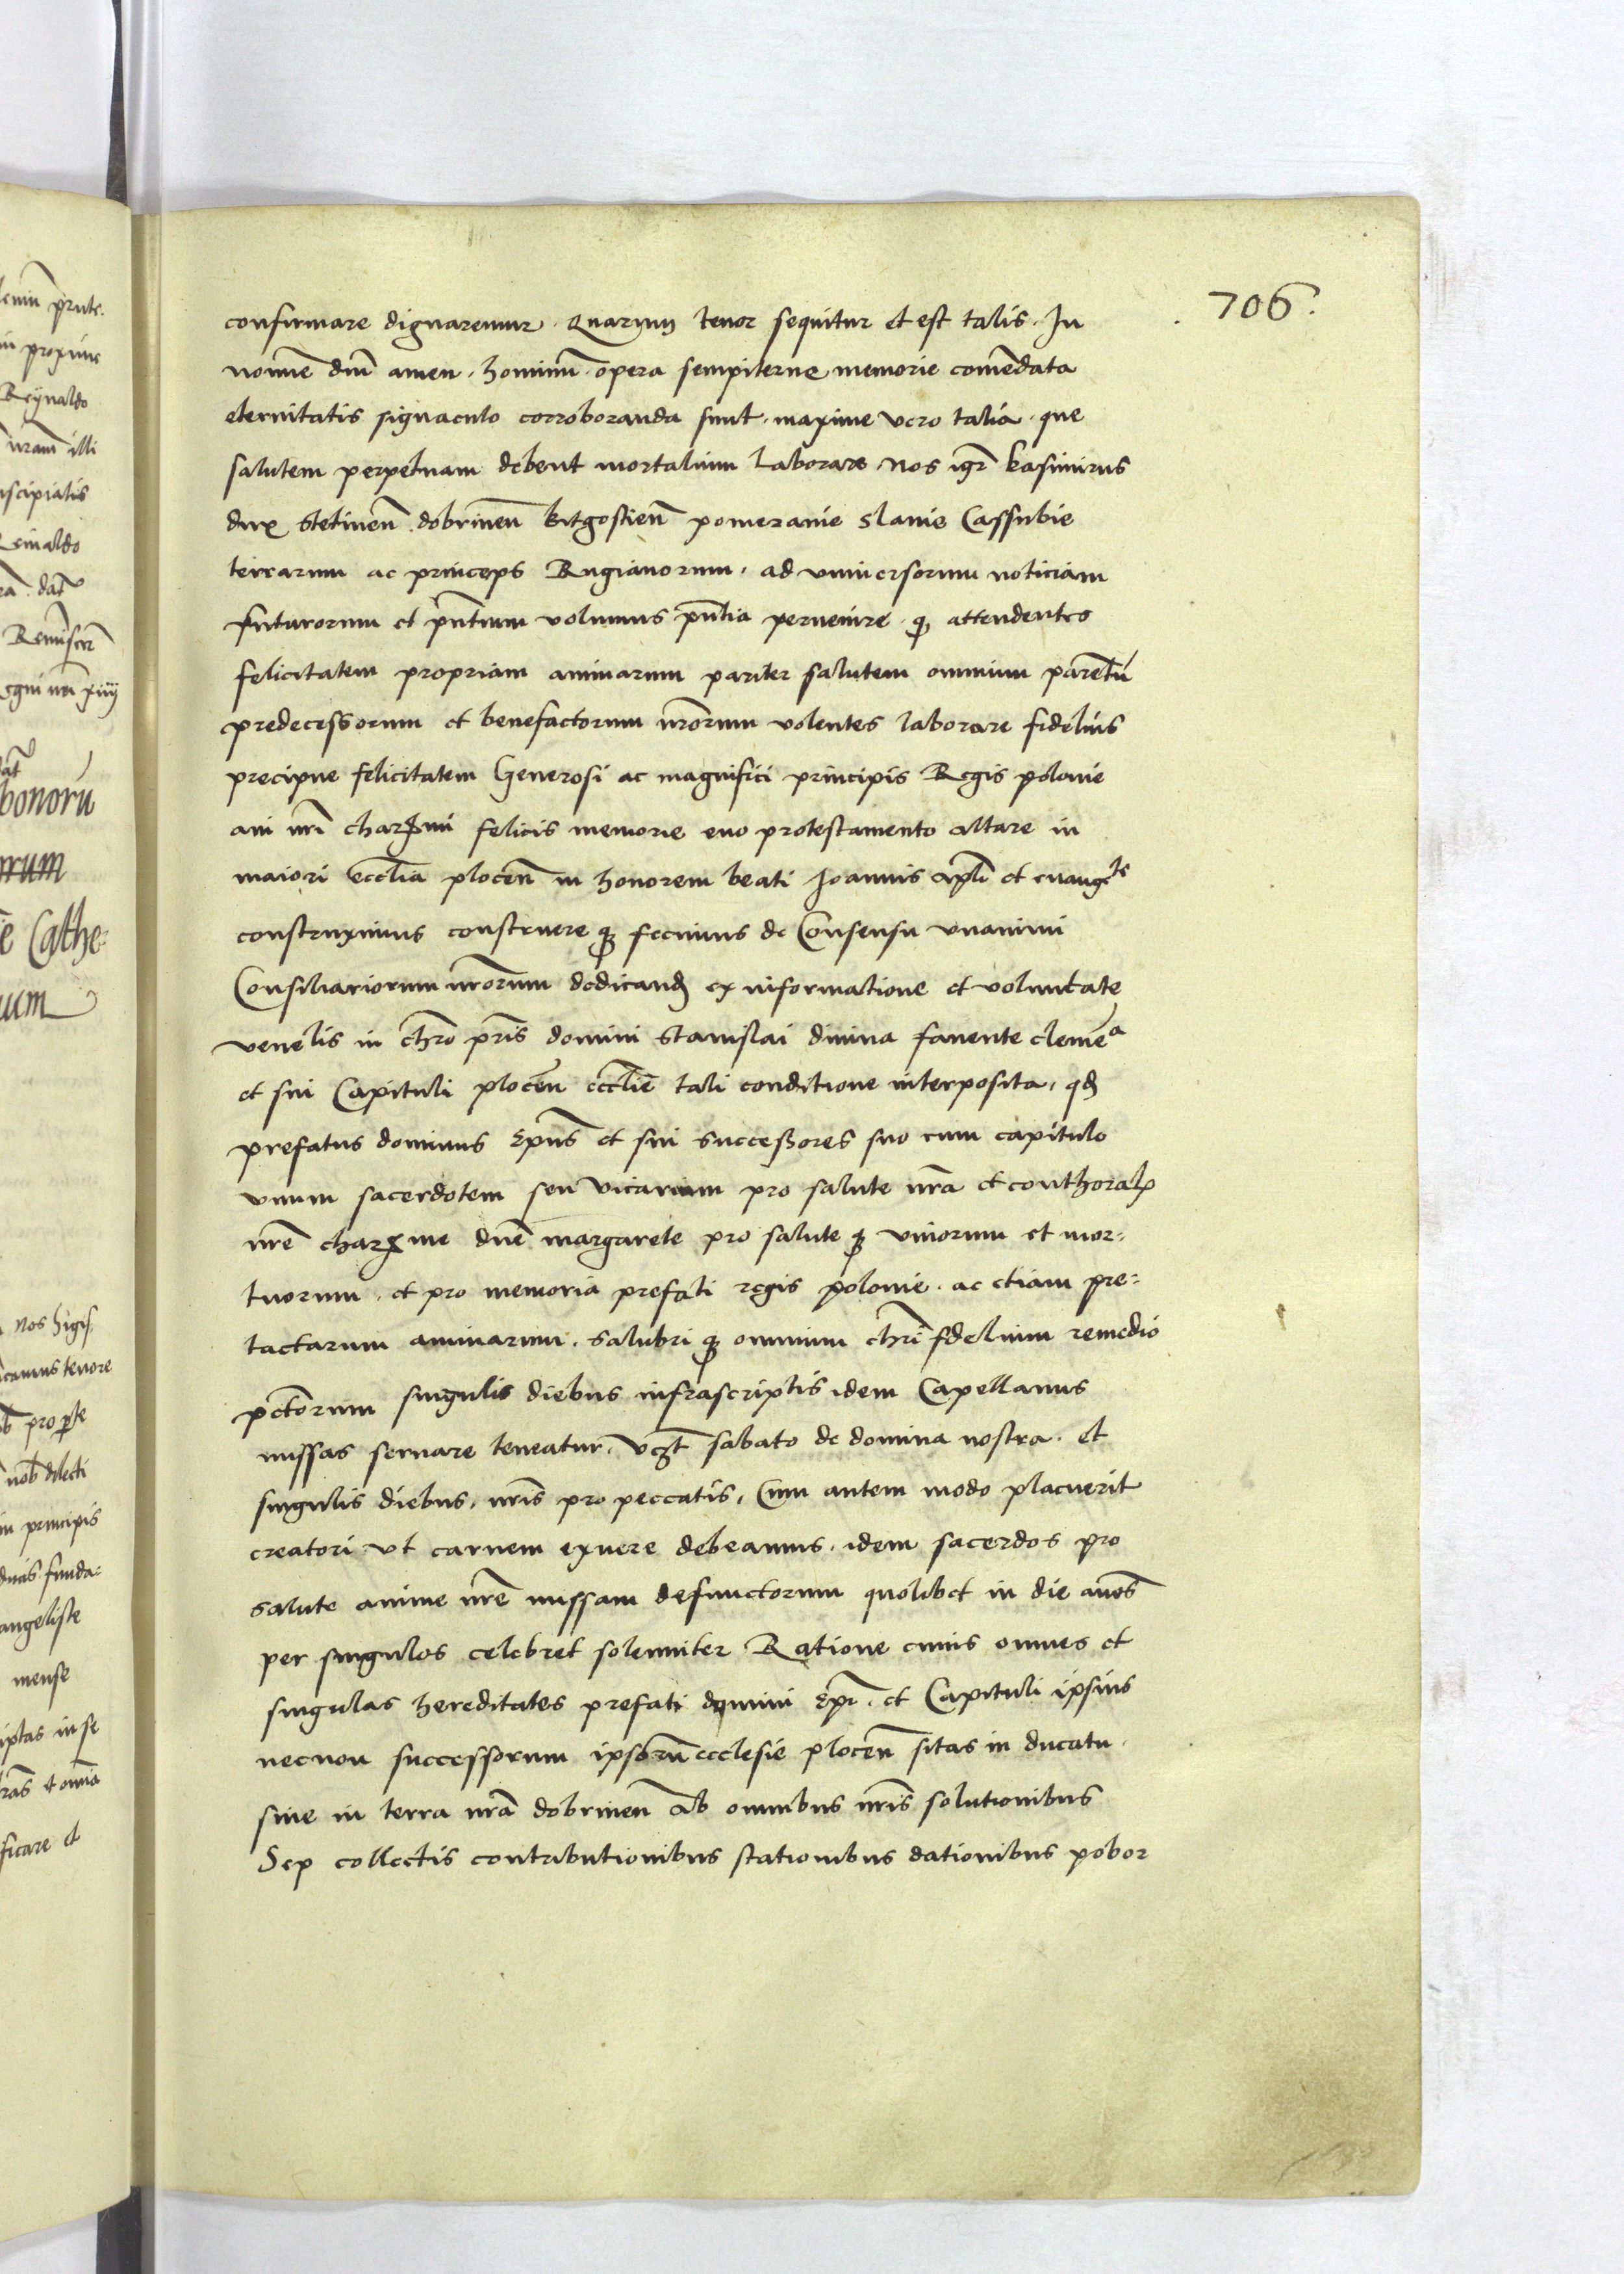 706.
confirmare dignaremur. Quarum tenor sequitur et est talis. In
nomine dni amen. hominu opera sempiterne memorie comendata
eternitatis signaculo corroboranda sunt. maxime vero talia. que
salutem perpetuam debent mortalium Laborare Nos igr kasimirus
dux Stetinen dobrinen bitgostien pomeranie Slavie Cassubie
terrarum ac princeps Rugianorum. ad universorum noticiam
futurorum et pntium volumus pntia pervenire. q attendentes
felicitatem propriam animarum pariter salutem omnium parentu
predecessorum et benefactorum nrorum volentes laborare fidelius
precipue felicitatem Generosi ac magnifici principis Regis polonie
avi nri charmi felicis memorie evo protestamento altare in
maiori ecclia plocen in honorem beati Joannis apli et evangte
construximus construere q fecimus de Consensu unanimi
Consiliariorum nrorum dedicand ex informatione et voluntate
venelis in chro pris domini Stanislai divina favente clemea
et sui Capituli plocen ecclie tali conditione interposita, qd
prefatus dominus Epus et sui successores suo cum capitulo
unum sacerdotem seu vicarium pro salute nra et conthoral
nre charme dne margarete pro salute q vivorum et mor-
tuorum. et pro memoria prefati regis polonie. ac etiam pre-
tactarum animarum. salubri q omnium chri fidelium remedio
pctorum singulis diebus infrascriptis idem Capellanus
missas servare teneatur, vczt sabato de domina nostra. et
singulis diebus, nris pro peccatis, Cum autem modo placuerit
creatori ut carnem exuere debeamus. idem sacerdos pro
salute anime nre missam defunctorum quolibet in die anos
per singulos celebret solenniter Ratione cuius omnes et
singulas hereditates prefati domini Epi. et Capituli ipsius
necnon successorum ipsoru ecclesie plocen sitas in ducatu.
sive in terra nra dobrinen Ab omnibus nris solutionibus
Sep collectis contributionibus stationibus dationibus pobor